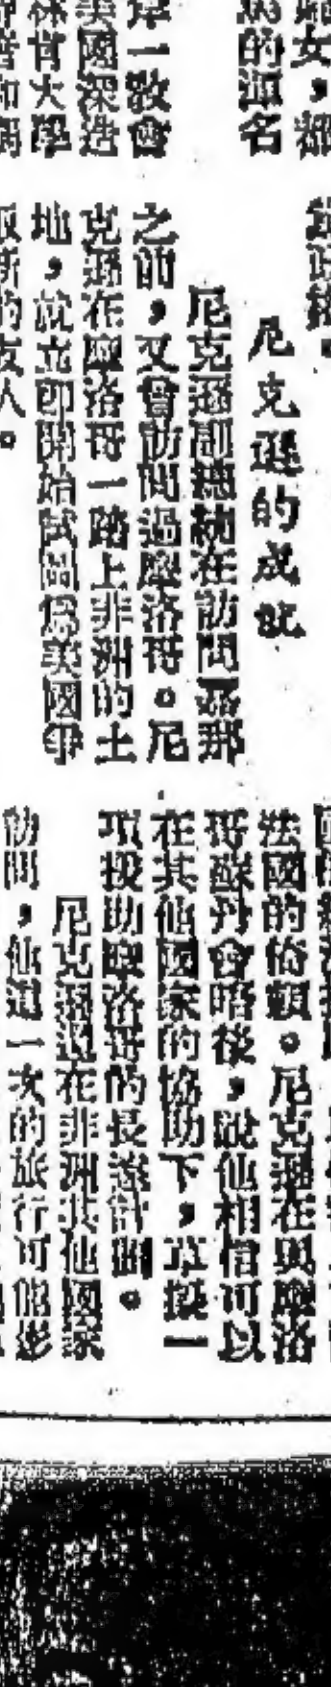 婦女，都
的祖名
岸一敎會
美國深造
林肯大學
尼克遜的成就
尼克遜副總統在訪問迦那
之前，又曾訪問過摩洛哥。尼
克遜在摩洛哥一踏上非洲的土
地，就立卽開始試圖爲美國爭
取新的友人。
法國的倚賴。尼克遜在與摩洛
哥蘇丹會晤後，說他相信可以
在其他國家的協助下，草擬一
項援助摩洛哥的長遠計劃。
尼克遜還在非洲其他國家
訪問，他這一次的旅行可能影